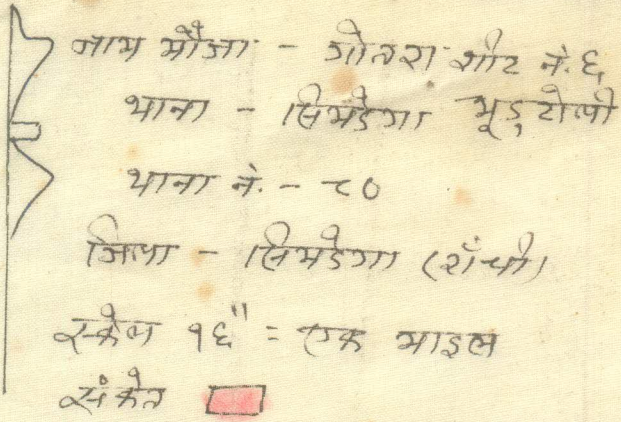 नाम मौजा - गोतरा शीट नं. ६
थाना - सिमडेगा भूडु टोली
थाना नं. - ८०
जिला - सिमडेगा (राँची)
स्केल १६" = एक माइल
संकेत